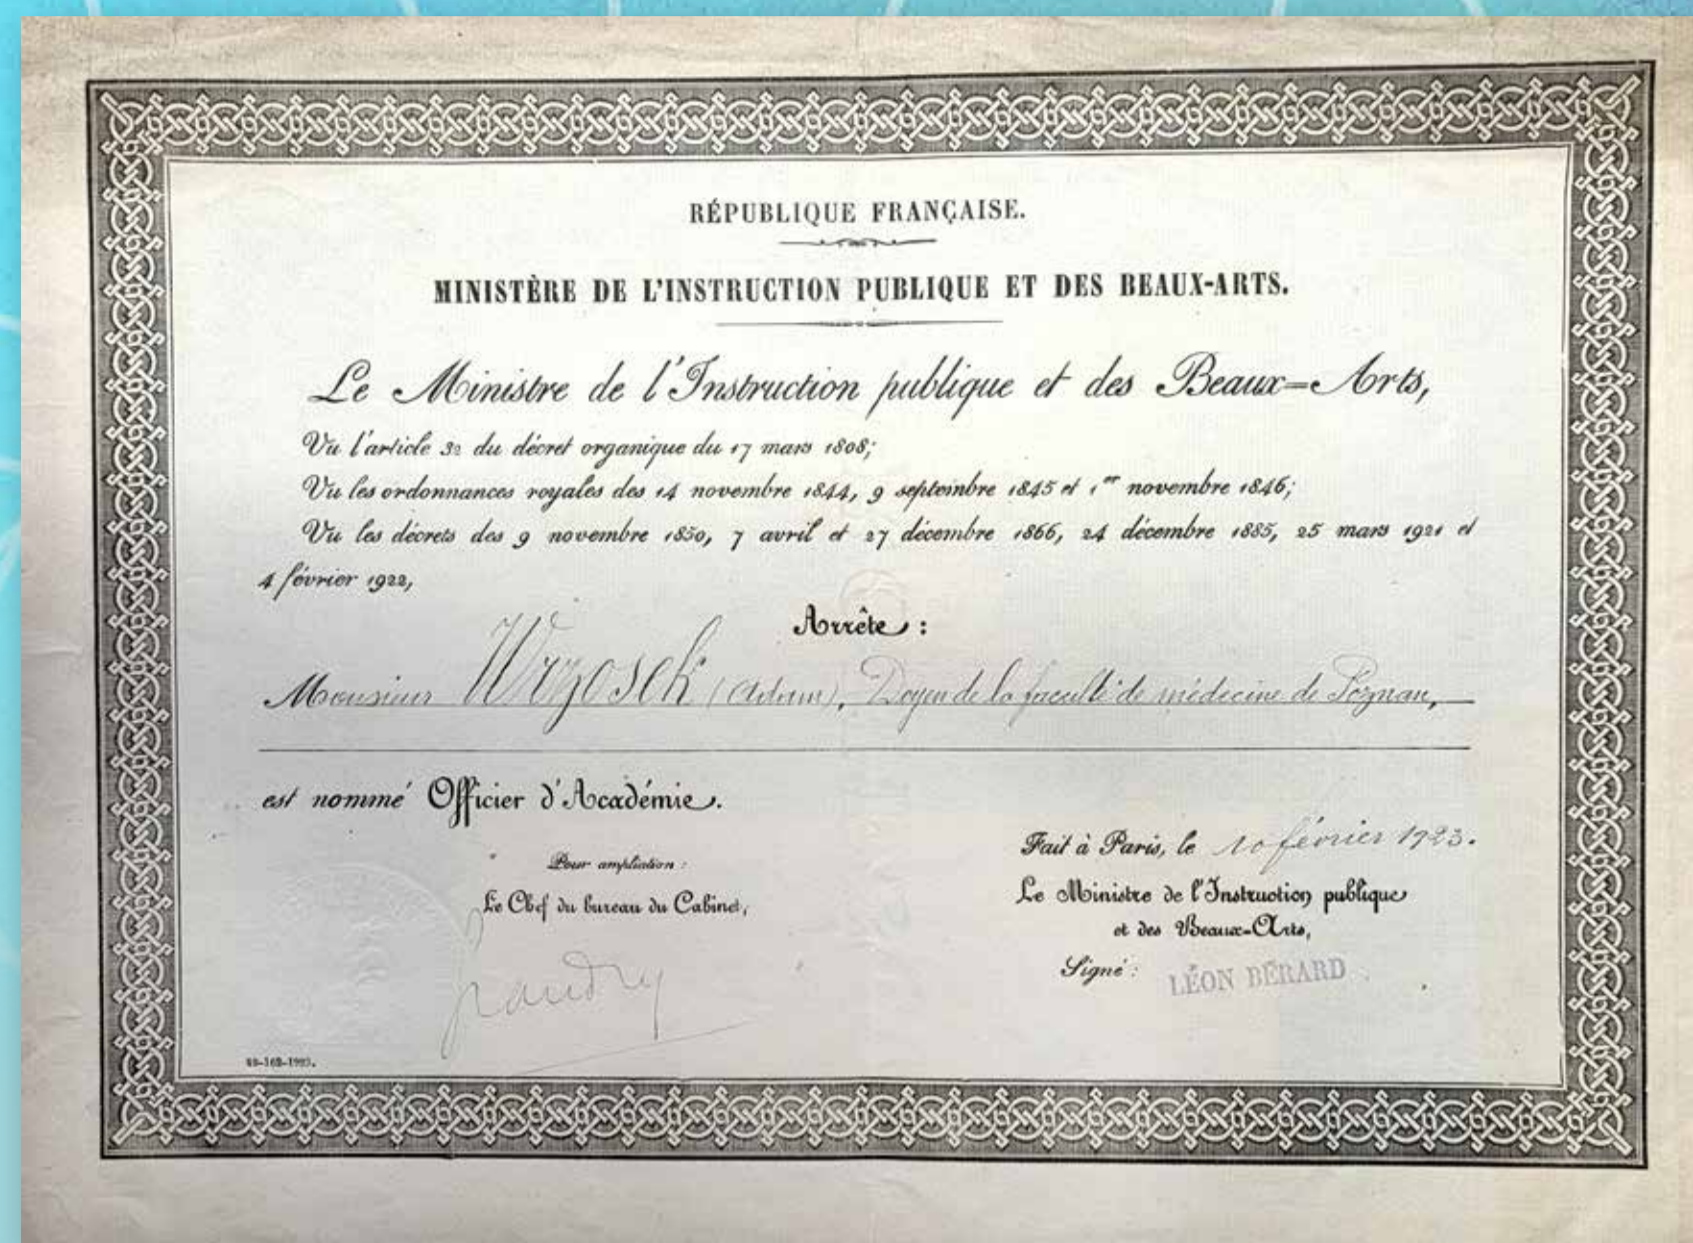 RÉPUBLIQUE FRANÇAISE.
MINISTÈRE DE L'INSTRUCTION PUBLIQUE ET DES BEAUX-ARTS.
Le Ministre de l'Instruction publique et des Beaux-Arts,
Vu l'article 32 du décret organique du 17 mars 1808;
Vu les ordonnances royales des 14 novembre 1844, 9 septembre 1845 et 1er novembre 1846;
Vu les décrets des 9 novembre 1850, 7 avril et 27 décembre 1866, 24 décembre 1885, 25 mars 1921 et
4 février 1922,
Arrête :
Monsieur Wrzosek (Adam), Doyen de la faculté de médecine de Poznan,
est nommé Officier d'Académie.
Fait à Paris, le 10 février 1923.
Pour ampliation :
Le Chef du bureau du Cabinet,
Le Ministre de l'Instruction publique
et des Beaux-Arts,
Signé : LÉON BÉRARD